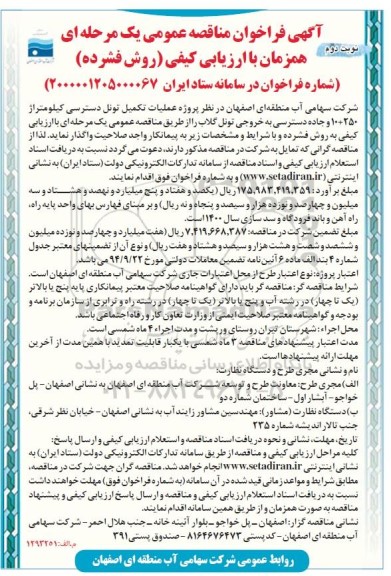 آگهی فراخوان مناقصه عمومی یک مرحله ای
همزمان با ارزیابی کیفی (روش فشرده)
نوبت دوم
(شماره فراخوان در سامانه ستاد ایران ۲۰۰۰۰۰۱۲۰۵۰۰۰۰۶۷)
شرکت سهامی آب منطقه‌ای اصفهان در نظر دارد پروژه عملیات تکمیل تونل دسترسی کیلومتراژ
۱۰+۲۵۰ و جاده دسترسی به خروجی تونل گلاب را از طریق مناقصه عمومی یک مرحله‌ای با ارزیابی
کیفی به روش فشرده و با شرایط و مشخصات زیر به پیمانکار واجد صلاحیت واگذار نماید. لذا از
مناقصه گرانی که تمایل به شرکت در مناقصه مذکور دارند، دعوت می گردد نسبت به دریافت اسناد
استعلام ارزیابی کیفی و اسناد مناقصه از سامانه تدارکات الکترونیکی دولت (ستاد ایران) به نشانی
اینترنتی (www.setadiran.ir) و به شماره فراخوان فوق اقدام نمایند.
مبلغ برآورد: ۱۷۵,۹۸۳,۴۱۹,۳۵۹ ریال (یکصد و هفتاد و پنج میلیارد و نهصد و هشتاد و سه
میلیون و چهارصد و نوزده هزار و سیصد و پنجاه و نه ریال) و بر مبنای فهارس بهای واحد پایه راه،
راه آهن و باند فرودگاه و سد سازی سال ۱۴۰۰ است.
مبلغ تضمین شرکت در مناقصه: ۷,۴۱۹,۶۶۸,۳۸۷ ریال (هفت میلیارد و چهارصد و نوزده میلیون
و ششصد و شصت و هشت هزار و سیصد و هشتاد و هفت ریال) و نوع آن از تضمینهای معتبر جدول
شماره ۴ بند الف ماده ۶ آئین‌نامه تضمین معاملات دولتی مورخ ۹۴/۹/۲۲ می باشد.
اعتبار پروژه: نوع اعتبار طرح از محل اعتبارات جاری شرکت سهامی آب منطقه ای اصفهان است.
شرایط مناقصه گر: مناقصه گر باید دارای گواهینامه صلاحیت معتبر پیمانکاری پایه پنج یا بالاتر
(یک تا چهار) در رشته آب و پنج یا بالاتر (یک تا چهار) در رشته راه و ترابری از سازمان برنامه و
بودجه و گواهینامه معتبر صلاحیت ایمنی از وزارت تعاون کار و رفاه اجتماعی باشد.
محل اجراء: شهرستان تیران روستای ورپشت و مدت اجراء ۴ ماه شمسی است.
مدت اعتبار پیشنهادهای مناقصه ۳ ماه شمسی با یکبار قابلیت تمدید با همین مدت از آخرین
مهلت ارائه پیشنهادها است.
نام و نشانی مجری طرح و دستگاه نظارت:
الف) مجری طرح: معاونت طرح و توسعه شرکت آب منطقه ای اصفهان به نشانی اصفهان - پل
خواجو - آبشار اول - ساختمان شماره دو
ب) دستگاه نظارت (مشاور): مهندسین مشاور زایند آب به نشانی اصفهان - خیابان نظر شرقی،
جنب تالار اندیشه شماره ۲۳۵
تاریخ، مهلت، نشانی و نحوه دریافت اسناد مناقصه و استعلام ارزیابی کیفی و ارسال پاسخ:
کلیه مراحل ارزیابی کیفی و مناقصه از طریق سامانه تدارکات الکترونیکی دولت (ستاد ایران) به
نشانی اینترنتی www.setadiran.ir انجام خواهد شد. مناقصه گران جهت شرکت در مناقصه،
مطابق شرایط و مواعد زمانی قید شده در آن سامانه (به شماره فراخوان فوق) مهلت خواهند داشت
نسبت به دریافت اسناد استعلام ارزیابی کیفی و مناقصه و ارسال پاسخ ارزیابی کیفی و پیشنهاد
مناقصه به صورت همزمان و از طریق همین سامانه اقدام نمایند.
نشانی مناقصه گزار: اصفهان - پل خواجو - بلوار آئینه خانه - جنب هلال احمر - شرکت سهامی
آب منطقه ای اصفهان - کد پستی ۸۱۶۴۶۷۶۴۷۳ - صندوق پستی ۳۹۱
م.الف: ۱۲۹۳۲۵۱
روابط عمومی شرکت سهامی آب منطقه ای اصفهان